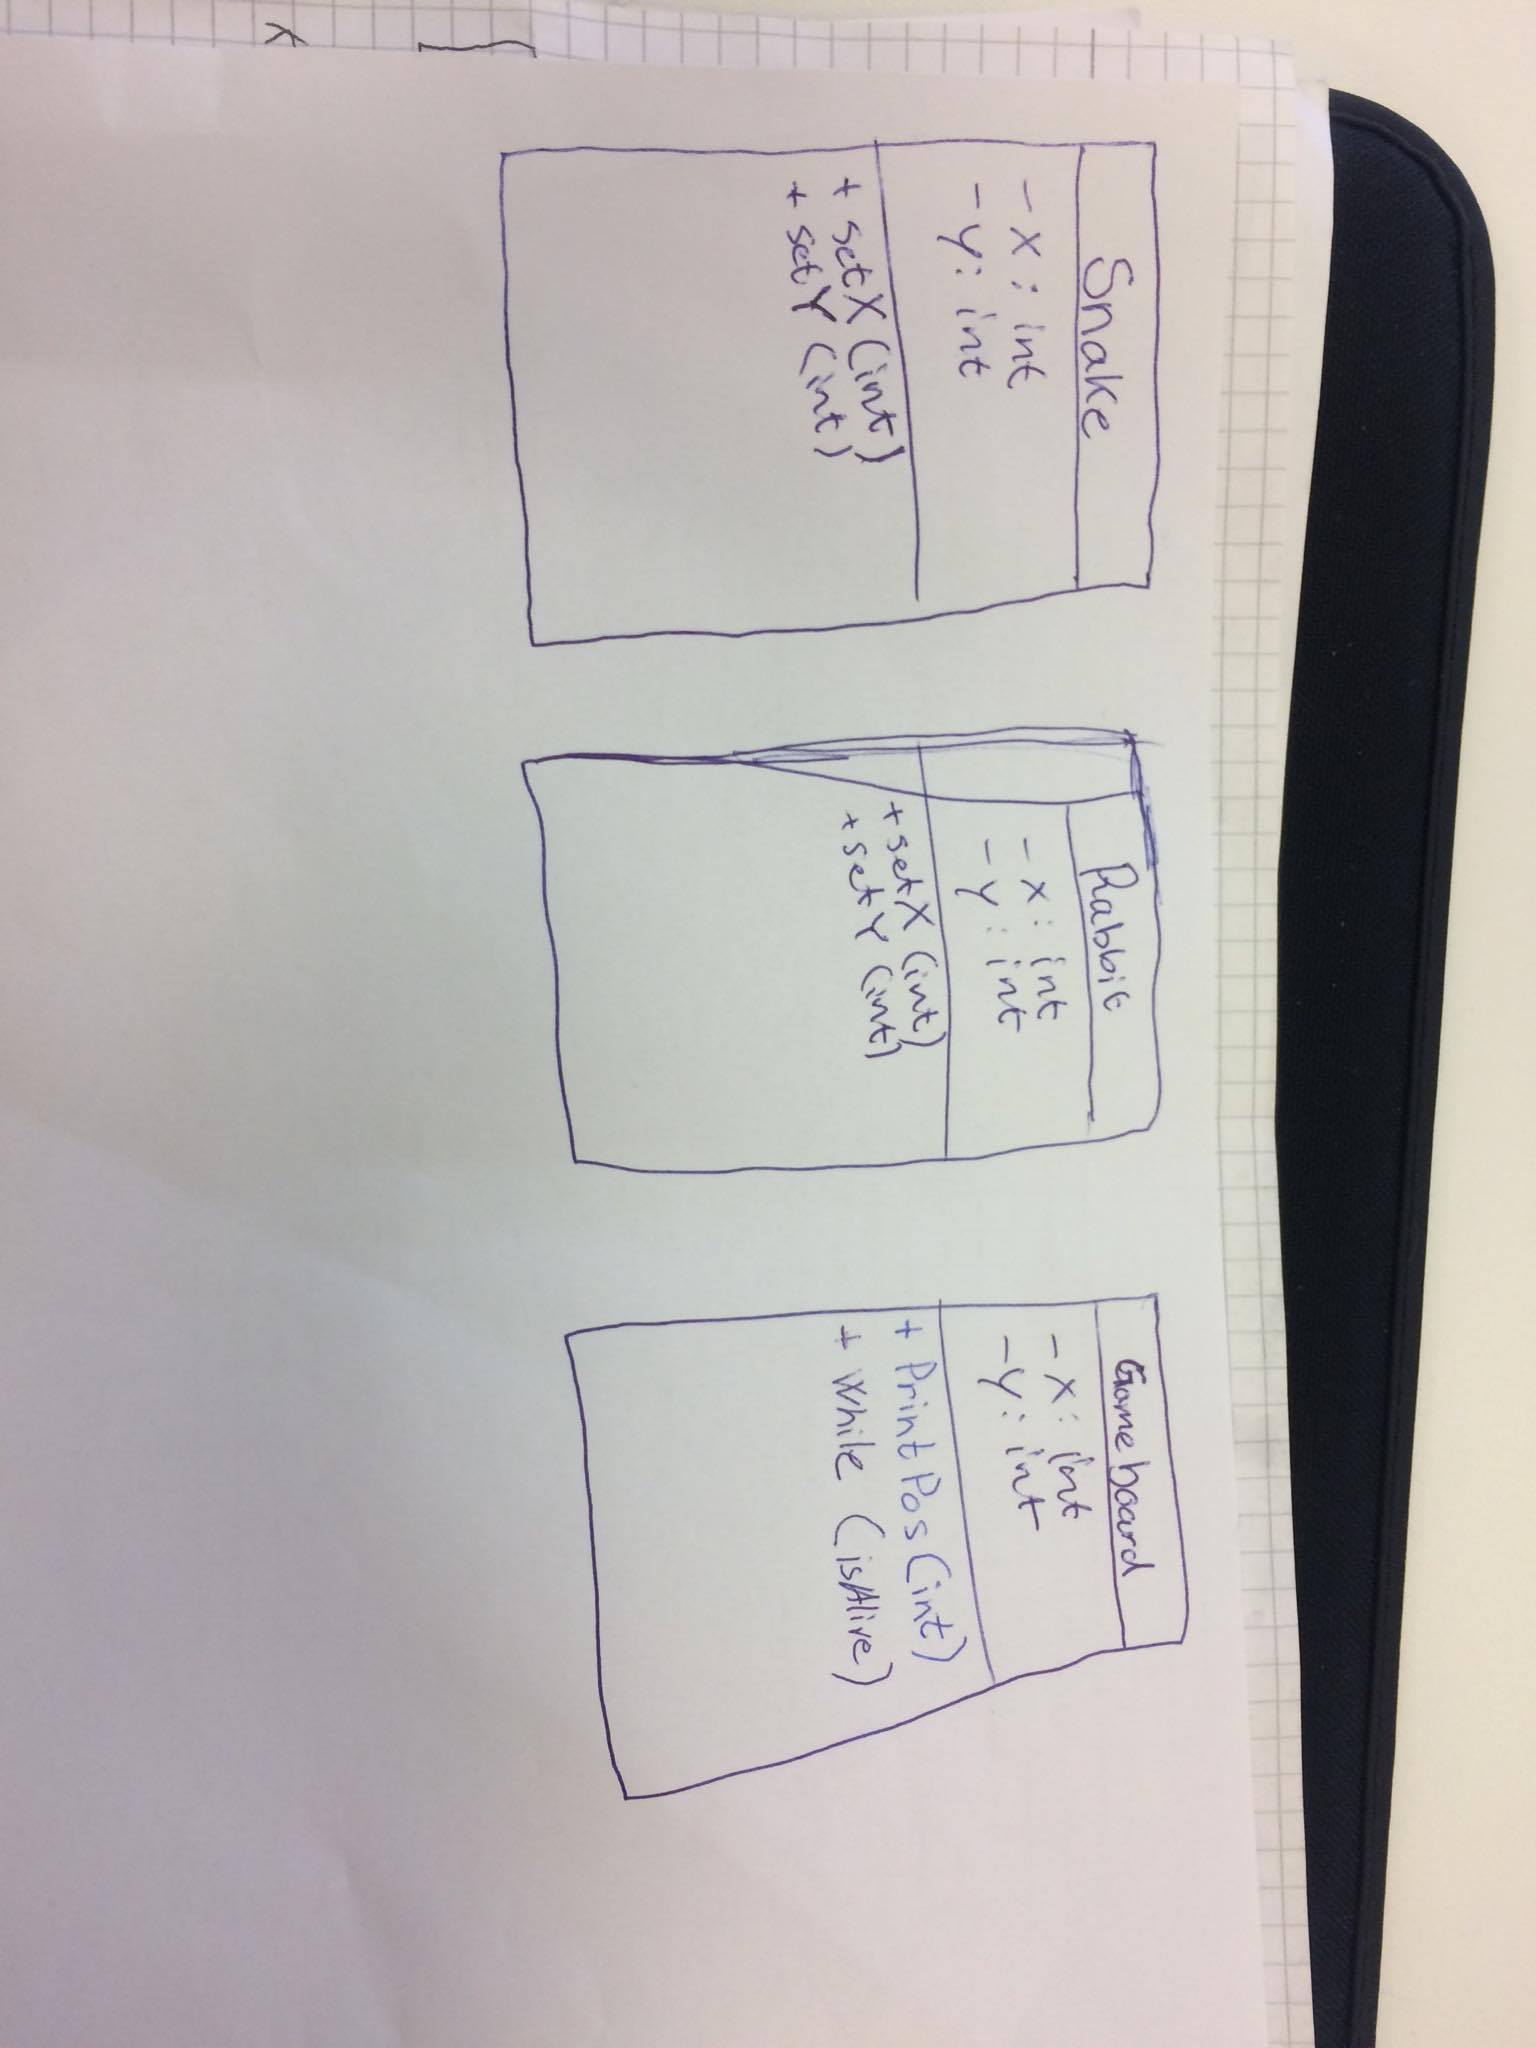 Snake
- x : int
- y : int
+ setX (int)
+ setY (int)
Rabbit
- x : int
- y : int
+ setX (int)
+ setY (int)
Gameboard
- x : int
- y : int
+ PrintPos (int)
+ While (isAlive)